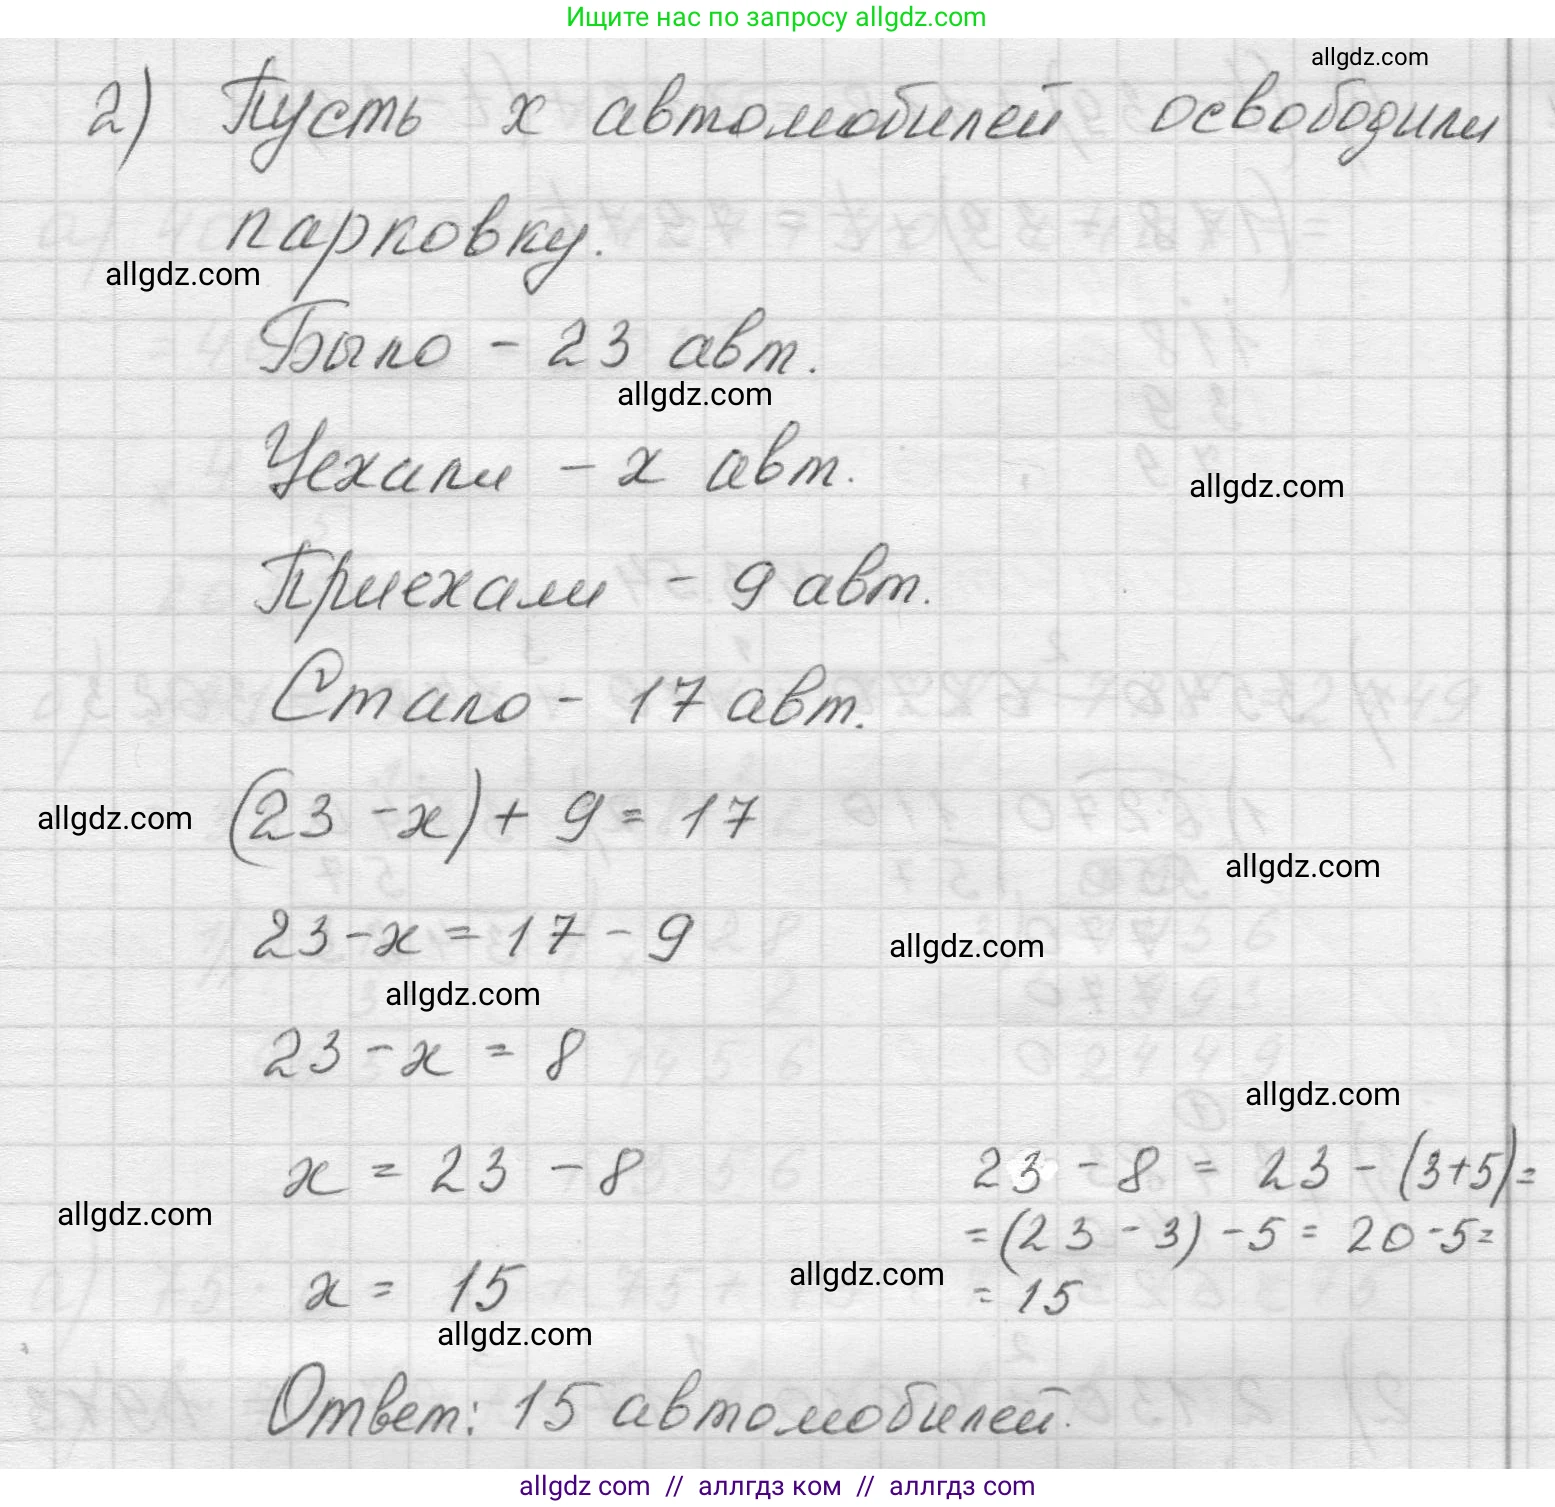 Ищите нас по запросу allgdz.com
allgdz.com
2) Пусть x автомобилей освободили
парковку.
allgdz.com
Было - 23 авт.
allgdz.com
Уехали - x авт.
allgdz.com
Приехали - 9 авт.
Стало - 17 авт.
allgdz.com
(23 - x) + 9 = 17
allgdz.com
23 - x = 17 - 9
allgdz.com
allgdz.com
23 - x = 8
allgdz.com
x = 23 - 8
23 - 8 = 23 - (3+5) =
= (23 - 3) - 5 = 20 - 5 =
= 15
allgdz.com
allgdz.com
x = 15
allgdz.com
Ответ: 15 автомобилей.
allgdz.com // аллгдз ком // аллгдз com